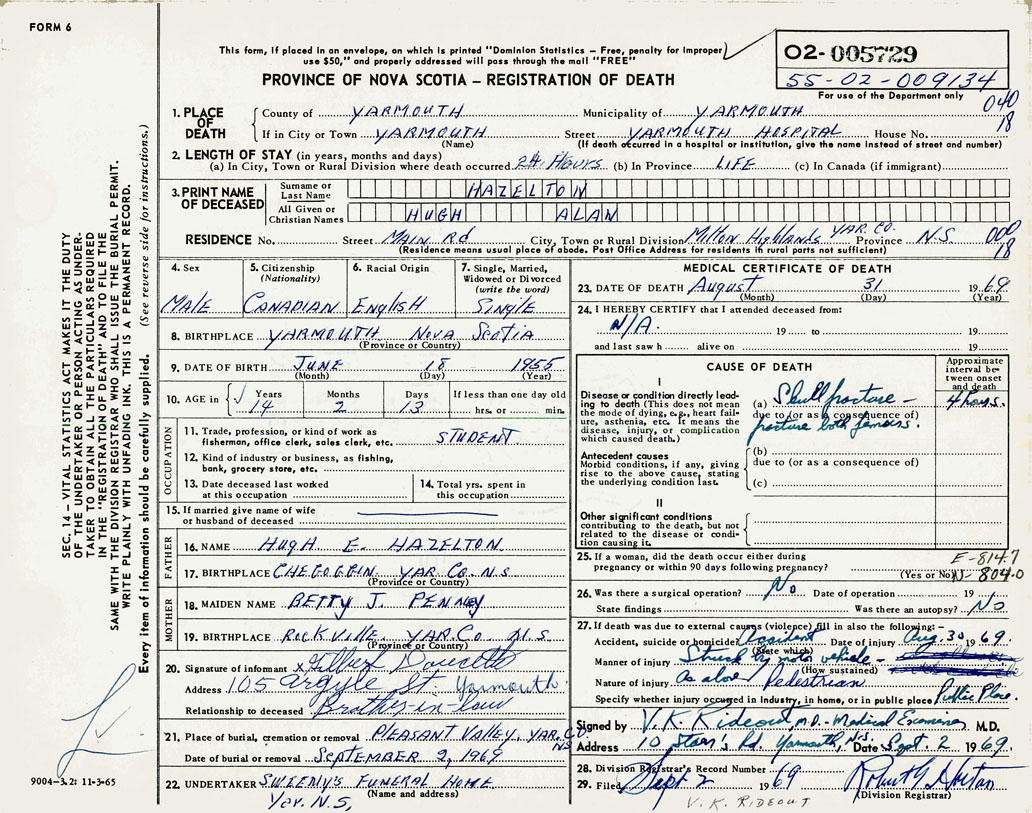 FORM 6
This form, if placed in an envelope, on which is printed "Dominion Statistics – Free, penalty for improper
use $50," and properly addressed will pass through the mail "FREE"
PROVINCE OF NOVA SCOTIA – REGISTRATION OF DEATH
02-005729
55-02-009134
For use of the Department only
040
18
1. PLACE OF DEATH
County of YARMOUTH Municipality of YARMOUTH
If in City or Town YARMOUTH Street YARMOUTH HOSPITAL House No.
(Name) (If death occurred in a hospital or institution, give the name instead of street and number)
2. LENGTH OF STAY (in years, months and days)
(a) In City, Town or Rural Division where death occurred 24 HOURS (b) In Province LIFE (c) In Canada (if immigrant)
3. PRINT NAME OF DECEASED
Surname or Last Name HAZELTON
All Given or Christian Names HUGH ALAN
RESIDENCE No. Street MAIN Rd City, Town or Rural Division Milton Highlands YAR. CO. Province N.S. 000
18
(Residence means usual place of abode. Post Office Address for residents in rural parts not sufficient)
4. Sex
MALE
5. Citizenship
(Nationality)
CANADIAN
6. Racial Origin
English
7. Single, Married, Widowed or Divorced
(write the word)
SINGLE
8. BIRTHPLACE YARMOUTH NOVA SCOTIA
(Province or Country)
9. DATE OF BIRTH JUNE 18 1955
(Month) (Day) (Year)
10. AGE in Years Months Days If less than one day old
14 2 13 hrs. or min.
OCCUPATION
11. Trade, profession, or kind of work as
fisherman, office clerk, sales clerk, etc. STUDENT
12. Kind of industry or business, as fishing,
bank, grocery store, etc.
13. Date deceased last worked
at this occupation
14. Total yrs. spent in
this occupation
15. If married give name of wife
or husband of deceased
FATHER
16. NAME HUGH E. HAZELTON
17. BIRTHPLACE CHEGOGGIN YAR. CO. N.S
(Province or Country)
MOTHER
18. MAIDEN NAME BETTY J. PENNEY
19. BIRTHPLACE ROCKVILLE YAR. CO N.S
(Province or Country)
20. Signature of informant x Gilbert Doucette
Address 105 Argyle St. Yarmouth
Relationship to deceased Brother-in-law
21. Place of burial, cremation or removal PLEASANT VALLEY, YAR. CO.
NS
Date of burial or removal SEPTEMBER 2, 1969
22. UNDERTAKER SWEENY'S FUNERAL HOME
(Name and address)
Yar. N.S.
MEDICAL CERTIFICATE OF DEATH
23. DATE OF DEATH August 31 1969
(Month) (Day) (Year)
24. I HEREBY CERTIFY that I attended deceased from:
N/A. 19 to 19
and last saw h alive on 19
CAUSE OF DEATH
Approximate interval between onset and death
I
Disease or condition directly leading to death (This does not mean the mode of dying, e.g., heart failure, asthenia, etc. It means the disease, injury, or complication which caused death.)
(a) Skull fracture – 4 hours.
due to (or as a consequence of)
fracture both femurs.
Antecedent causes
Morbid conditions, if any, giving rise to the above cause, stating the underlying condition last.
(b)
due to (or as a consequence of)
(c)
II
Other significant conditions
contributing to the death, but not related to the disease or condition causing it.
25. If a woman, did the death occur either during
pregnancy or within 90 days following pregnancy?
(Yes or No)
E-814.7
N-804.0
26. Was there a surgical operation? No Date of operation 19
State findings Was there an autopsy? No
27. If death was due to external causes (violence) fill in also the following:–
Accident, suicide or homicide? Accident Date of injury Aug. 30 1969.
(State which)
Manner of injury Struck by motor vehicle –
(How sustained)
Nature of injury As above Pedestrian
Specify whether injury occurred in industry, in home, or in public place Public Place.
Signed by V. K. Rideout M.D. - Medical Examiner M.D.
Address 10 Starr's Rd. Yarmouth, N.S. Date Sept. 2 1969.
28. Division Registrar's Record Number
29. Filed Sept 2 1969
(Division Registrar)
V. K. RIDEOUT
SEC. 14 – VITAL STATISTICS ACT MAKES IT THE DUTY
OF THE UNDERTAKER OR PERSON ACTING AS UNDER-
TAKER TO OBTAIN ALL THE PARTICULARS REQUIRED
IN THE "REGISTRATION OF DEATH" AND TO FILE THE
SAME WITH THE DIVISION REGISTRAR WHO SHALL ISSUE THE BURIAL PERMIT.
WRITE PLAINLY WITH UNFADING INK. THIS IS A PERMANENT RECORD.
Every item of information should be carefully supplied. (See reverse side for instructions.)
9004-3.2: 11-3-65